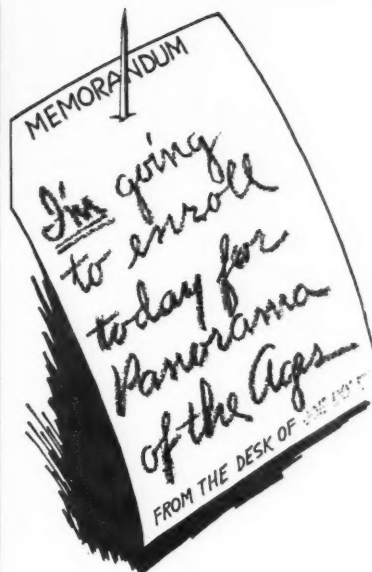 MEMORANDUM
I'm going
to enroll
today for
Panorama
of the Ages
FROM THE DESK OF